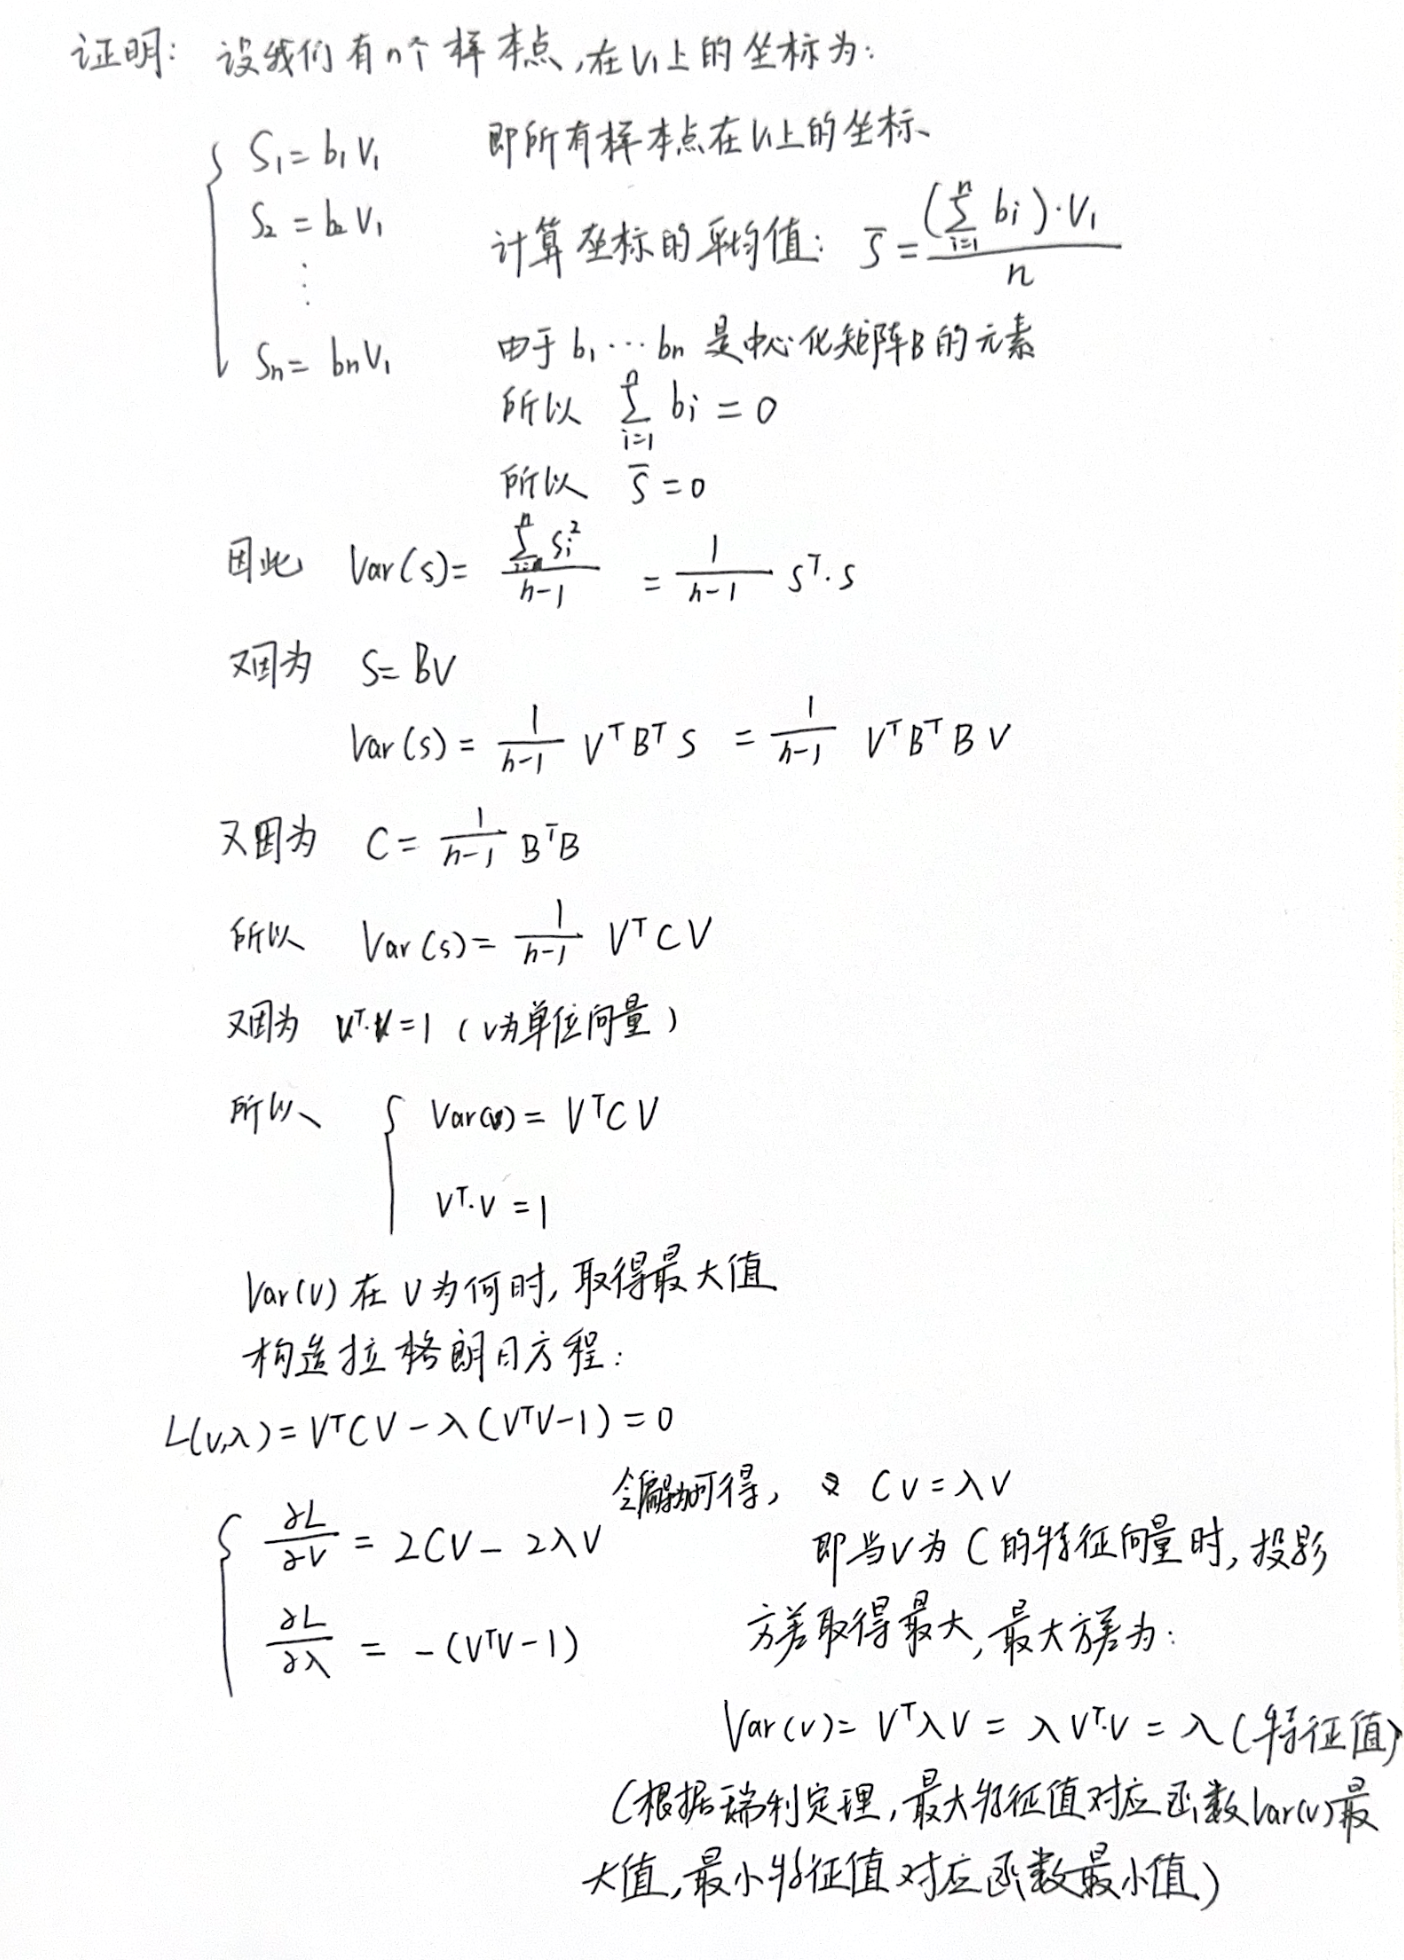 证明: 设我们有n个样本点,在V₁上的坐标为:
S₁ = b₁V₁ 即所有样本点在V₁上的坐标、
S₂ = b₂V₁ 计算坐标的平均值: S̄ = (∑ᵢ₌₁ⁿ bi)·V₁ / n
⋮
Sn = bnV₁ 由于 b₁ ⋯ bn 是中心化矩阵B的元素
所以 ∑ᵢ₌₁ⁿ bi = 0
所以 S̄ = 0
因此 Var(s) = ∑ Sᵢ² / (n-1) = 1/(n-1) Sᵀ·S
又因为 S = BV
Var(s) = 1/(n-1) VᵀBᵀS = 1/(n-1) VᵀBᵀBV
又因为 C = 1/(n-1) BᵀB
所以 Var(s) = 1/(n-1) VᵀCV
又因为 Vᵀ·V = 1 (V为单位向量)
所以 Var(v) = VᵀCV
Vᵀ·V = 1
Var(v) 在 V 为何时, 取得最大值
构造拉格朗日方程:
L(v,λ) = VᵀCV - λ(VᵀV-1) = 0
令偏导为0可得, CV = λV
∂L/∂V = 2CV - 2λV
即当V为C的特征向量时, 投影
∂L/∂λ = -(VᵀV-1)
方差取得最大, 最大方差为:
Var(v) = VᵀλV = λVᵀ·V = λ (特征值)
(根据瑞利定理, 最大特征值对应函数Var(v)最
大值, 最小特征值对应函数最小值)